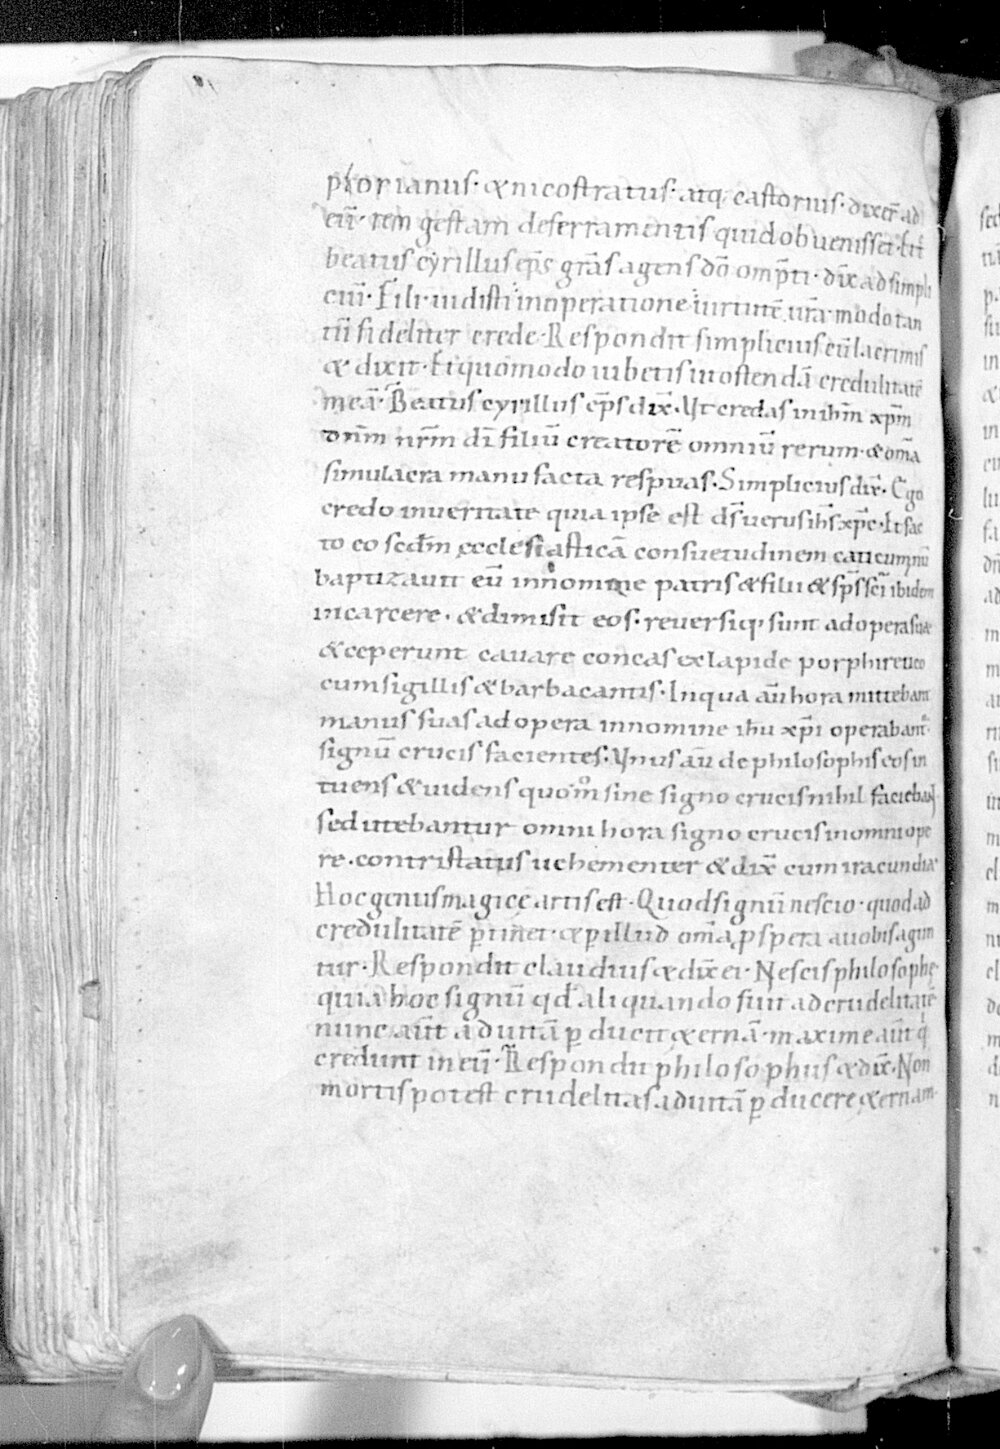 phorianus· & nicostratus· atq; castorius· dixer̄ ad
eū· rem gestam deferramentis quid obuenisset· Tūc
beatus cyrillus ep̄s grās agens dō omp̄ti· dix̄ ad simpli
ciū· Fili· uidisti inoperatione uirtutē ur̄a· modo tan
tū fideliter crede· Respondit simplicius cū lacrimis
& dixit· Et quomodo iubetis ut ostendā credulitatē
meā· Beatus cyrillus ep̄s dix̄· Ut credas in ihm̄ xp̄m
dn̄m nr̄m dī filiū creatorē omniū rerum· & om̄a
simulacra manufacta respuas· Simplicius dix̄· Ego
credo inueritate quia ipse est ds̄ uerus ihs̄ xp̄c· Et fac
to eo scdm̄ ęcclesiasticā consuetudinem caticuminū
baptizauit eū innomine patris & filii & sp̄s scī ibidem
incarcere· & dimisit eos· reuersiq; sunt ad opera sua
& ceperunt cauare concas exlapide porphiretico
cum sigillis & barbacantis· In qua aū hora mittebant
manus suas ad opera innomine ihū xp̄i operabant᷑·
signū crucis facientes· Unus aū de philosophis eos in
tuens & uidens quom̊ sine signo crucis nihil faciebant
sed utebantur omni hora signo crucis inomni ope
re· contristatus uehementer & dix̄ cum iracundia·
Hoc genus magicę artis est· Quod signū nescio· quod ad
credulitatē p̱tinet· & p̱ illud om̄a ꝓspera auobis agun
tur· Respondit claudius & dix̄ ei· Nescis philosophe
quia hoc signū qd̄ aliquando fuit ad crudelitatē
nunc aūt ad uitā p̱ducit ęternā· maxime aūt q̇
credunt in eū· Respondit philosophus & dix̄· Non
mortis potest crudelitas ad uitā p̱ducere ęternam·